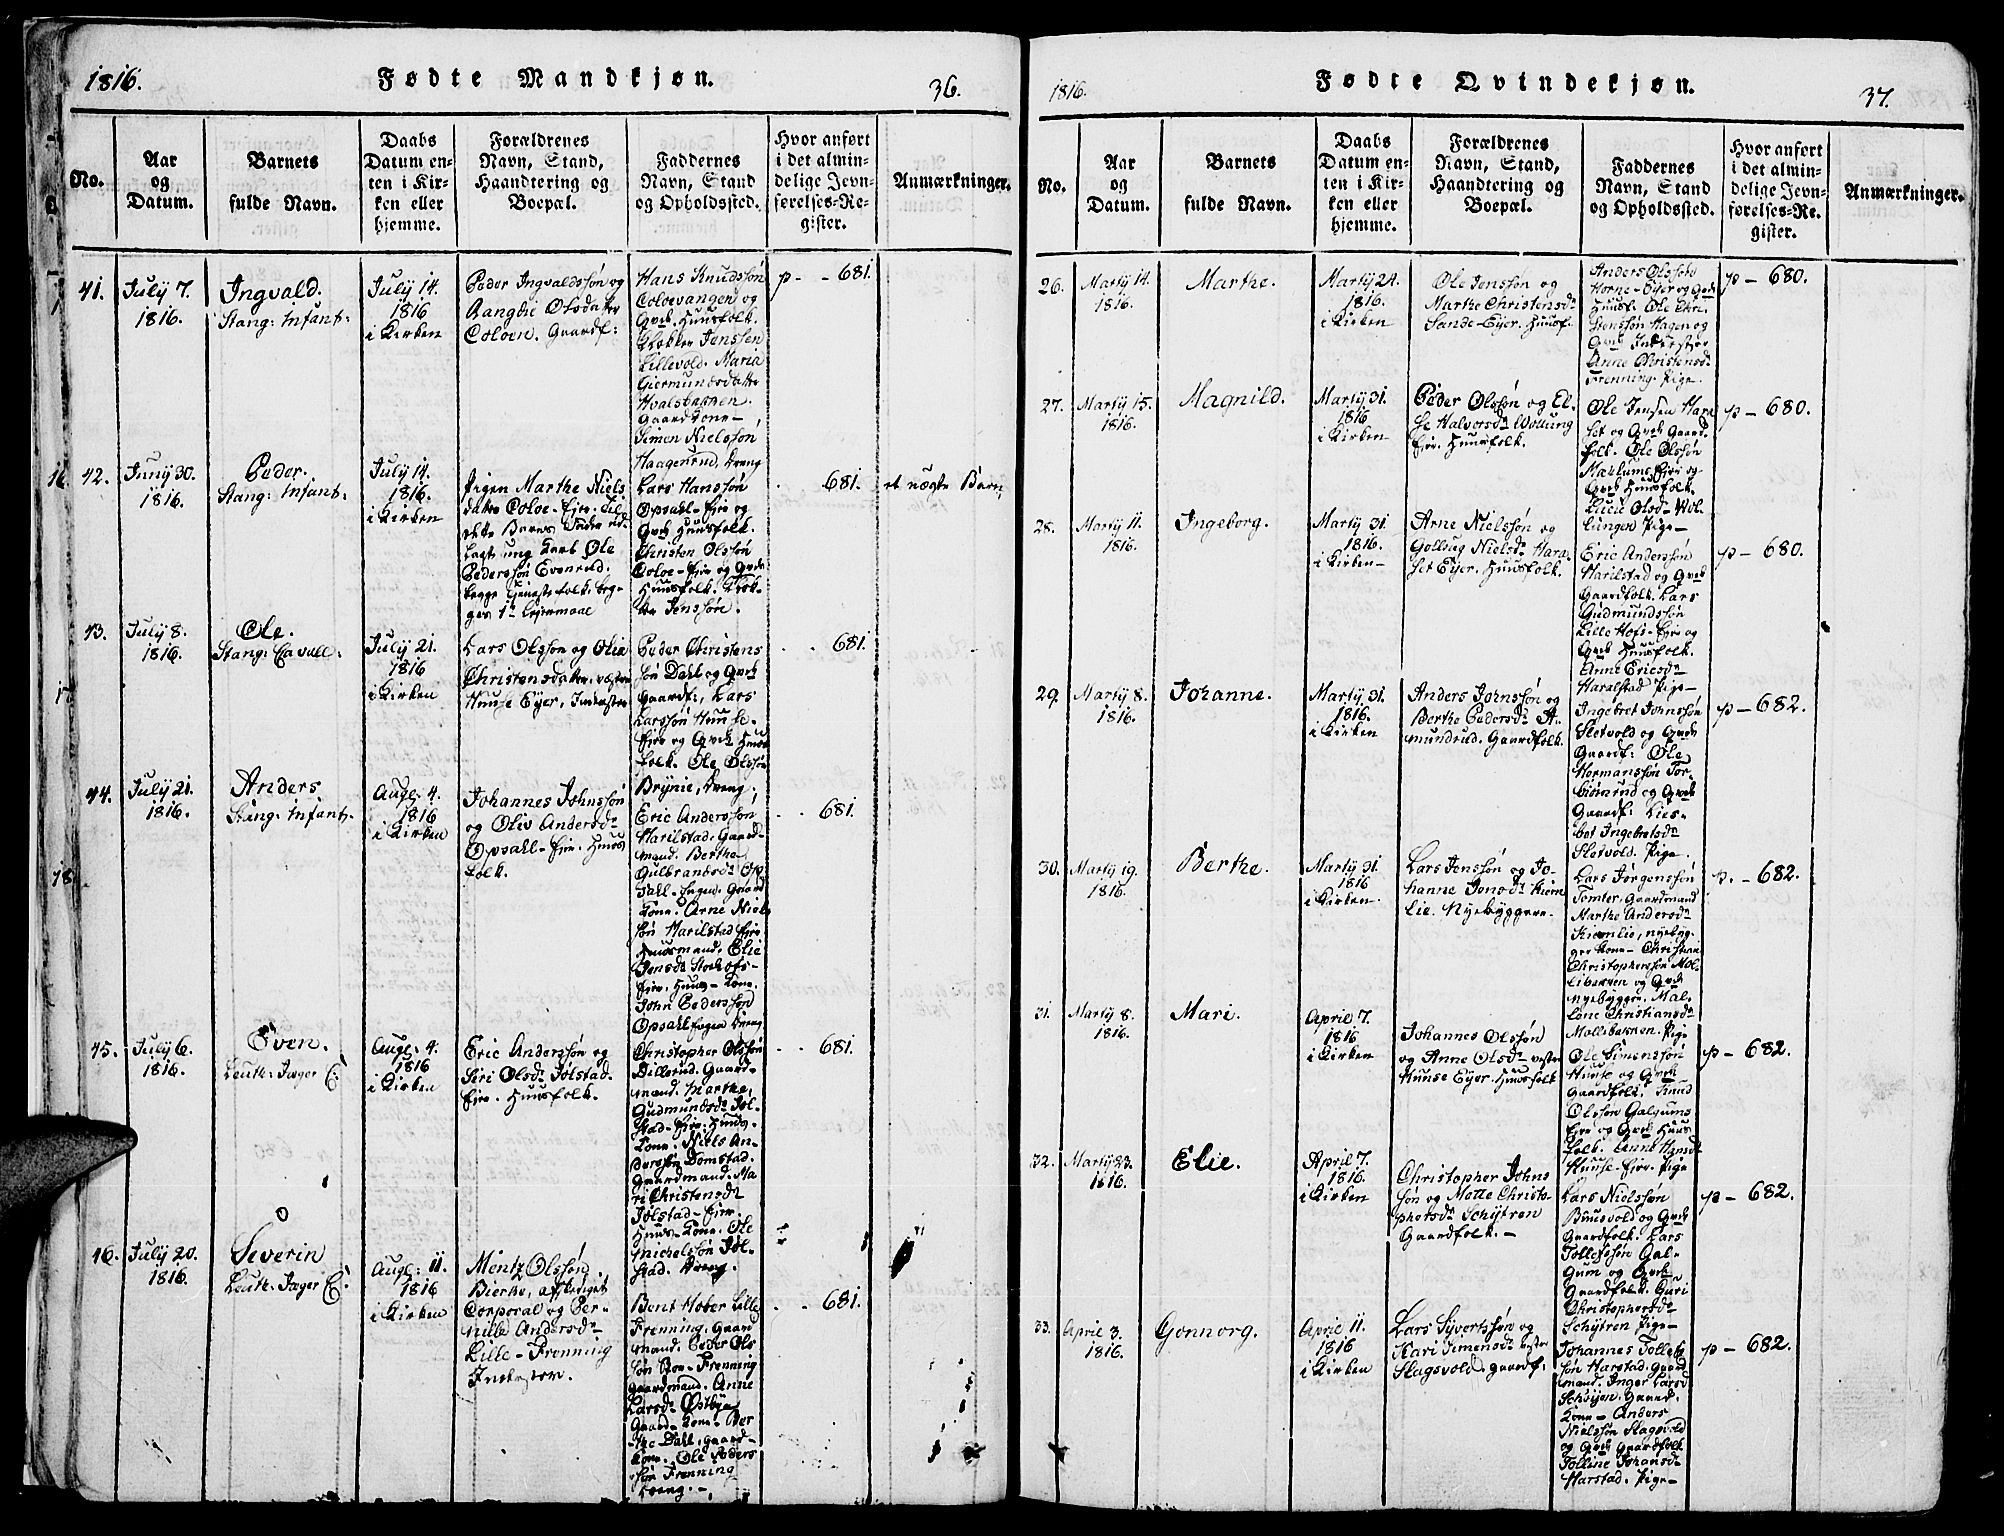 1816.
Fødte Mandkjøn.
36.
No.
Aar
og
Datum.
Barnets
fulde Navn.
Daabs
Datum en-
ten i Kir-
ken eller
hjemme.
Forældrenes
Navn, Stand,
Haandtering og
Boepæl.
Faddernes
Navn, Stand
og Opholdssted.
Hvor anført
i det almin-
delige Jevn-
førelses-Re-
gister.
Anmærkninger.
41.
July 7.
1816.
Ingvald.
Stang: Infant:
July 14.
1816
i Kirken
Peder Ingvaldssøn og
Ranghe Olsdatter
Coloen. Gaardf:
Hans Knudssøn
Coloevangen og
Qvck Huusfolk.
Klokker Jenssen
Lillevold. Maria
Giermundsdatter
Hvalsbakken.
Gaardkone-
Simen Nielssøn
Haagenrud, Dreng
p- - 681.
42.
Juny 30.
1816.
Peder.
Stang: Infant:
July 14.
1816.
i Kirken
Pigen Marthe Niels
datter Coloe-Eje. Til
dette Barns Fader ud-
lagt ung Karl Ole
Pederssøn Evenrud.
begge Tjenestefolk, beg-
ges 1te Lejermaal
Lars Hanssøn
Opsahl-Eje og
Qvck Huusfolk.
Christen Olssøn
Coloe-Eje og Qvck
Huusfolk. Klok-
ker Jenssøn.
- 681.
et uægte Barn,
43.
July 8.
1816.
Ole.
Stang: Cavall:
July 21.
1816
i Kirken
Lars Olssøn og Olia
Christensdatter, vestre
Huuse Ejer, Inderster
Peder Christens
søn Dahl og Qvck
Gaardf:, Lars
Larssøn Huuse-
Eje og Qvck Huus
folk. Ole Olssøn
Brynie, Dreng,
- - 681.
44.
July 21.
1816.
Anders
Stang: Infant:
Augl: 4.
1816
i Kirken
Johannes Johnssøn
og Oliv Andersdr
Opsahl-Eje. Huus
folk.
Eric Anderssøn
Harilstad. Gaard-
mand. Berthe
Gulbrandsdr Op
sahl-Engen. Gaard
Kone. Arne Niels
søn Harilstad Eje
Huusmand. Elie
Jensdr Storhofs-
Eje. Huus-Kone.
John Pederssøn
Opsahl Engen Dreng
- - 681.
45.
July 6.
1816.
Even.
Leuth: Jæger C:
Augl: 4.
1816
i Kirken
Eric Anderssøn og
Siri Olsdr Jølstad.
Eje. Huusfolk.
Christopher Olssøn
Dillerud. Gaard-
mand. Marthe
Gudmundsdr Jøl-
stad-Eje. Huus-
Kone. Niels An-
derssøn Domstad.
Gaardmand. Ma
ri Christensdr
Jølstad-Eje.
Huus-Kone. Ole
Michelssøn Jøl-
stad. Dreng.
- - 681.
46.
July 20.
1816.
Severin
Leuth: Jæger C:
Augl: 11.
1816
i Kirken
Mentz Olssøn
Bierke, afskediget
Corporal og Per-
nille Andersdr
Lille-Frenning
Inderster.
Bent Hober Lille
Frenning. Gaard
mand. Peder Ols
søn Boe-Frenning
Gaardmand. Anne
Larsdr Østbye
Gaard-Kone. Ber
the Dahl, gaard-
Kone. Ole Anders
søn Frenning
Dreng.-
- - 681.
1816.
Fødte Qvindekjøn.
37.
No.
Aar
og
Datum.
Barnets
fulde Navn.
Daabs
Datum en-
ten i Kir-
ken eller
hjemme.
Forældrenes
Navn, Stand,
Haandtering og
Boepæl.
Faddernes
Navn, Stand
og Opholdssted.
Hvor anført
i det almin-
delige Jevn-
førelses-Re-
gister.
Anmærkninger.
26.
Marty 14.
1816.
Marthe.
Marty 24.
1816.
i Kirken
Ole Jenssøn og
Marthe Christensdr
Sande-Ejer. Huusf.
Anders Olssøn
Horne-Ejer og Qvck
Huusf. Ole Chri
stenssøn Hagen og
Qvck Inderster
Anne Christensdr
Frenning. Pige.
p - 680.
27.
Marty 15.
1816.
Magnild.
Marty 31.
1816
i Kirken
Peder Olssøn og El-
se Halvorsdr Wollung
Eje. Huusfolk.
Ole Jensen Hara
set og Qvck Gaard-
folk. Ole Olssøn
Maxlums Eje og
Qvck Huusfolk.
Lucie Olsdr Wol-
lungen Pige-
p - 680.
28.
Marty 11.
1816.
Ingeborg.
Marty 31.
1816.
i Kirken-
Arne Nielssøn og
Gollaug Nielsdr Hara-
set Ejer. Huusfolk.
Eric Anderssøn
Harilstad og Qvck
Gaardfolk. Lars
Gudmundssøn
Lille Hofs-Eje og
Qvck Huusfolk.
Anne Ericsdr
Haralstad Pige-
p - 680.
29.
Marty 8.
1816.
Johanne.
Marty 31.
1816.
i Kirken
Anders Johnssøn og
Berthe Pedersdr A-
mundrud. Gaardfolk.
Ingebret Johnssøn
Sletvold og Qvck
Gaardf: Ole
Hermanssøn Tor-
biørnrud og Qvck
Gaardf: Lies-
bet Ingebretsdr
Sletvold. Pige.
p - 682.
30.
Marty 19.
1816.
Berthe.
Marty 31.
1816
i Kirken.
Lars Jenssøn og Jo-
hanne Jonsdr Kiem
Lie. Nyebyggere.
Lars Jørgenssøn
Tomter. Gaardmand
Marthe Andersdr
Kiemlie, nyebyg-
ger Kone- Christian
Christopherssøn Mol-
libakken og Qvck
Nyebyggere. Mal-
lene Christiansdr
Mollibakken. Pige
p. - 682.
31.
Marty 8.
1816.
Mari.
April 7.
1816
i Kirken
Johannes Olssøn
og Anne Olsdr vestre
Huuse Ejer. Huusfolk
Ole Simenssøn
Huuse og Qvck
Gaardfolk. Knud
Olssøn Galgums
Eje og Qvck Huus
folk. Anne Hansdr
Huuse-Eje. Pige
p - 682.
32.
Marty 23.
1816.
Elie.
April 7.
1816.
i Kirken
Christopher Johns
søn og Mette Christo-
phersdr Schytren
Gaardfolk.-
Lars Nielssøn
Bruusvold og Qvck
Gaardfolk. Lars
Tollefssøn Gal-
gum og Qvck
Gaardfolk. Guri
Christophersdr
Schytren Pige-
p - 682.
33.
April 3.
1816.
Gonnorg.
April 11.
1816
i Kirken
Lars Syvertssøn og
Kari Simensdr vestre
Slagsvold. gaardf:
Johannes Tollefs
søn Harstad. Gaard
mand. Inger Larsd
Schøijen. Gaard
Kone- Anders
Nielssøn Slagsvold
og Qvck Gaardfolk
Tolline Johansdr
Harstad. Pige-
p - 682.